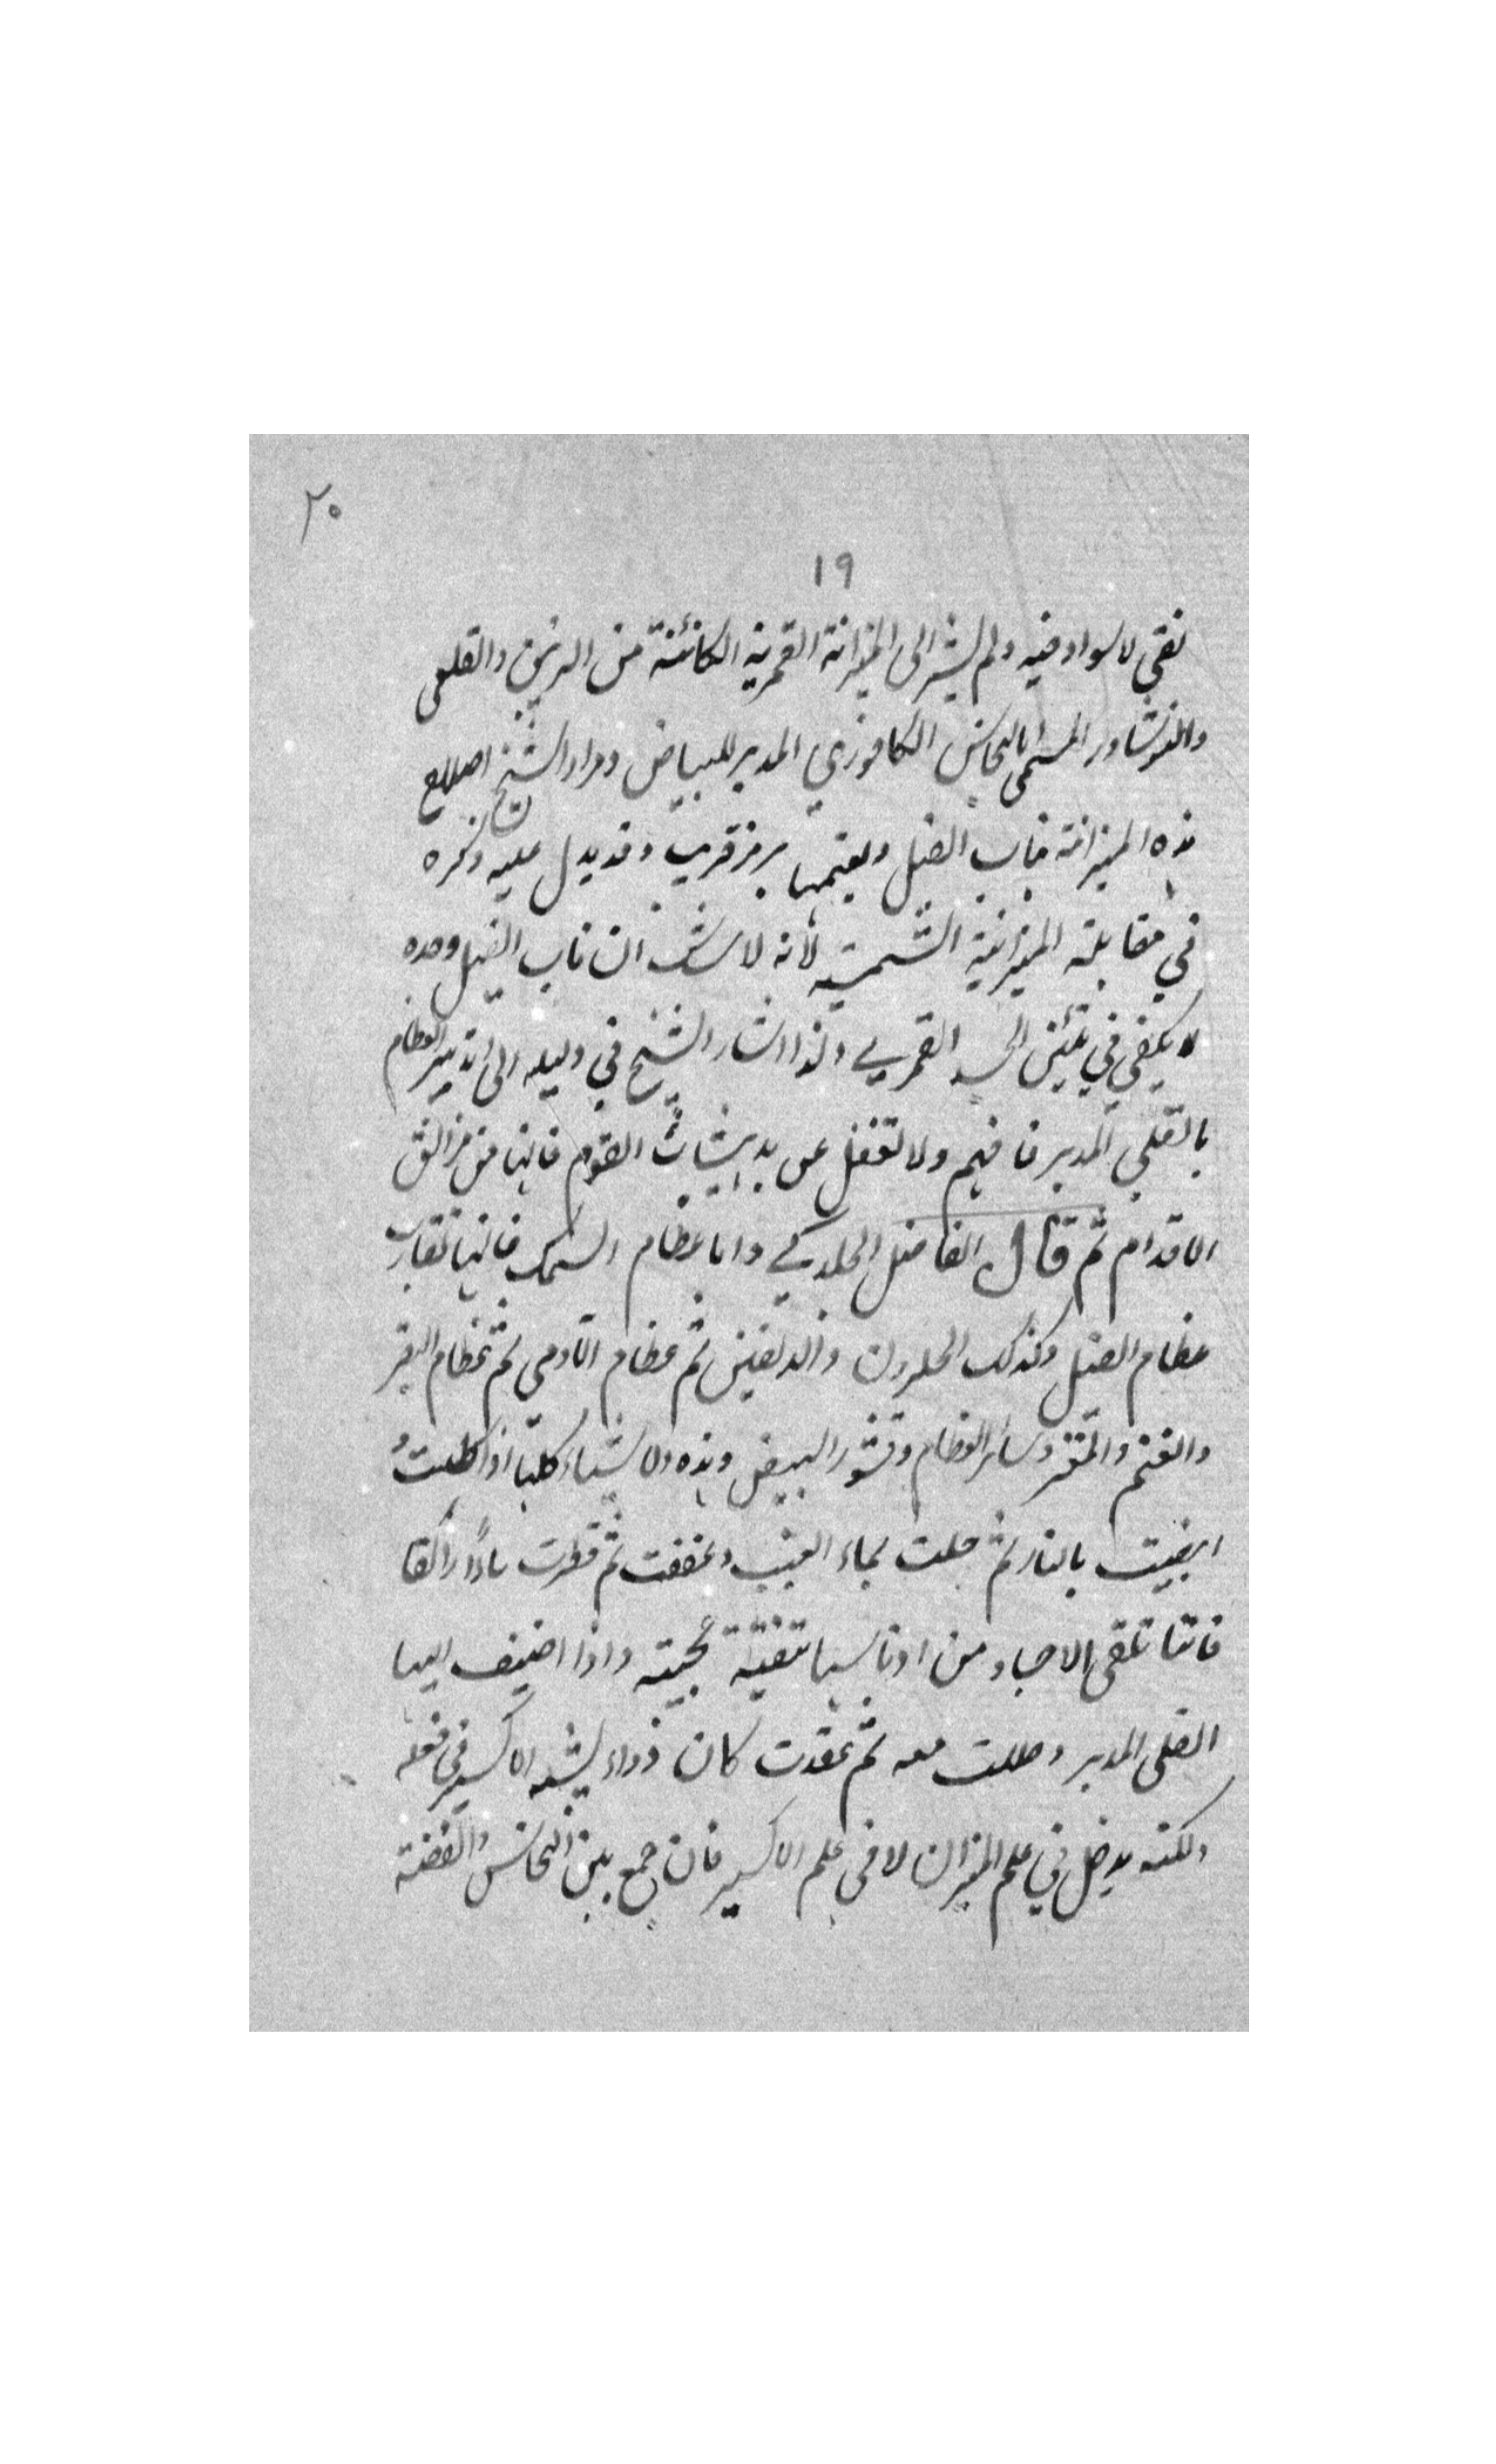 ٢٠
١٩
نقي لا سواد فيه ولم يشر الى الميزانة القمرية الكائنة من الزرنيخ والقلعى
والنوشادر المسمى بالنحاس الكافوري المدبر للبياض ومراد الشيخ
هذه الميزانة ناب الفيل برمز قريب وقد يدل عليه ذكره
في مقابلة الميزانية الشمسية لانه لا شك ان ناب الفيل وحده
لا يكفي في القمري ولذا اشار الشيخ في دليله الى تدبير العظام
بالقلي المدبر فافهم ولا تغفل عن القوم فانها من مزالق
الاقدام ثم قال الفاضل الجلدكي واما عظام السمك فانها تقارب
عظام الفيل وكذلك الحلزون والدلفين ثم عظام الآدمي ثم عظام البقر
والغنم والمعز وسائر العظام وقشور البيض وهذه الاشياء كلها اذا كلست
ابيضت بالنار ثم حلت بماء العنب وعقدت ثم
فانها تنقى الاجساد من اوناسها تنقية عجيبة واذا اضيف اليها
القلى المدبر وحللت معه ثم عقدت كان دواء يشبه الاكسير في فعله
ولكنه يدخل في علم الميزان لا في علم الاكسير فان جمع بين النحاس والفضة